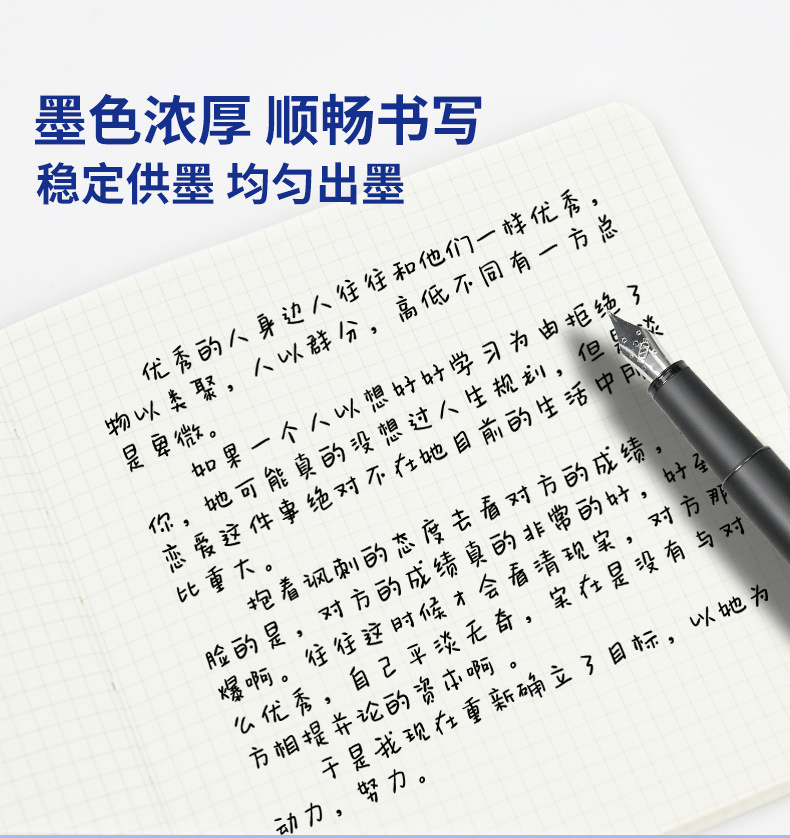 墨色浓厚 顺畅书写
稳定供墨 均匀出墨
优秀的人身边人往往和他们一样优秀，
物以类聚，人以群分，高低不同有一方总
是卑微。
如果一个人以想好好学习为由拒绝了
你，她可能真的没想过人生规划，但是谈
恋爱这件事绝对不在她目前的生活中所
比重大。
抱着讽刺的态度去看对方的成绩，
脸的是，对方的成绩真的非常的好，好至
爆啊。往往这时候才会看清现实，对方那
么优秀，自己平淡无奇，实在是没有与对
方相提并论的资本啊。
于是我现在重新确立了目标，以她为
动力，努力。